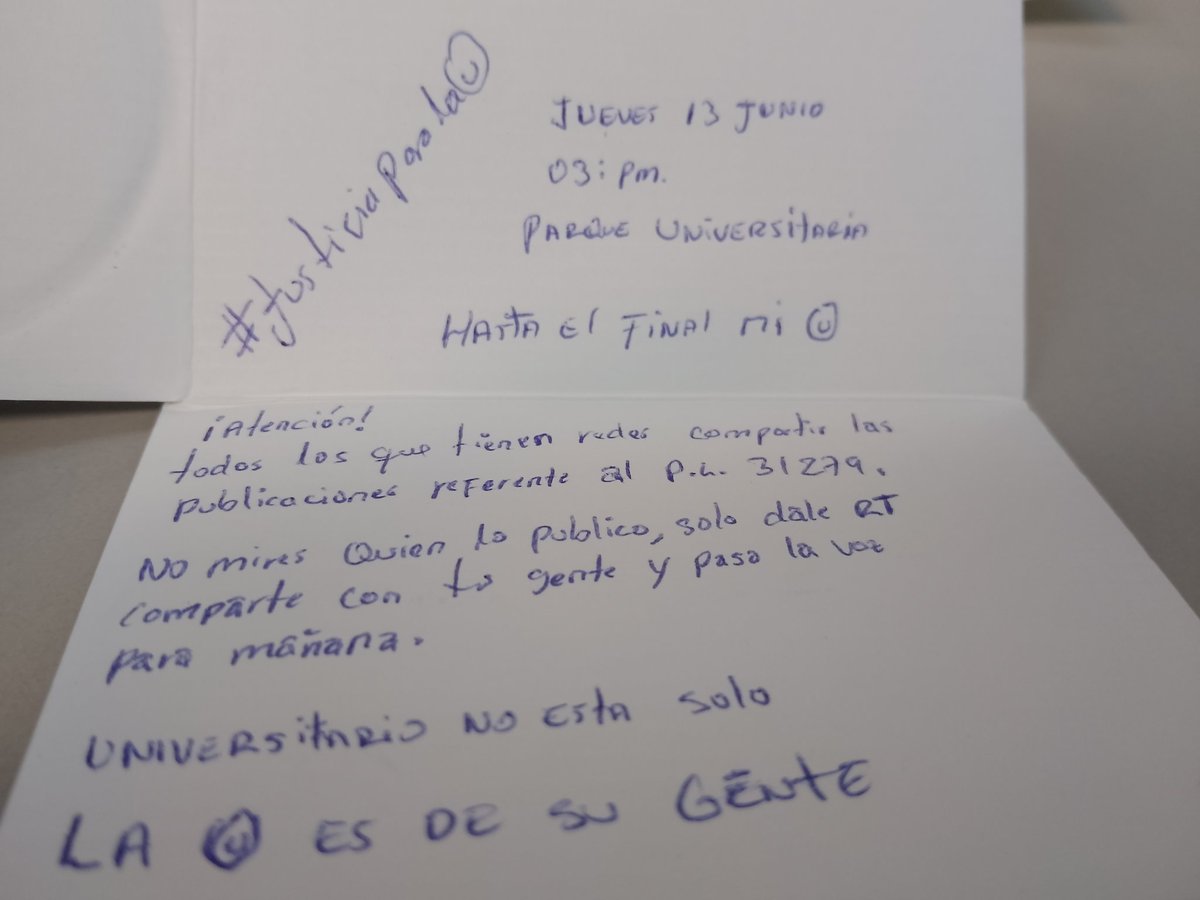 #Justicia para la U
JUEVES 13 JUNIO
03: pm.
PARQUE UNIVERSITARIA
HASTA EL FINAL MI U
¡Atención!
todos los que tienen redes compartir las
publicaciones referente al P.L. 31279.
No mires Quien lo publico, solo dale RT
comparte con tu gente y pasa la voz
para mañana.
UNIVERSITARIO NO ESTA SOLO
LA U ES DE SU GENTE